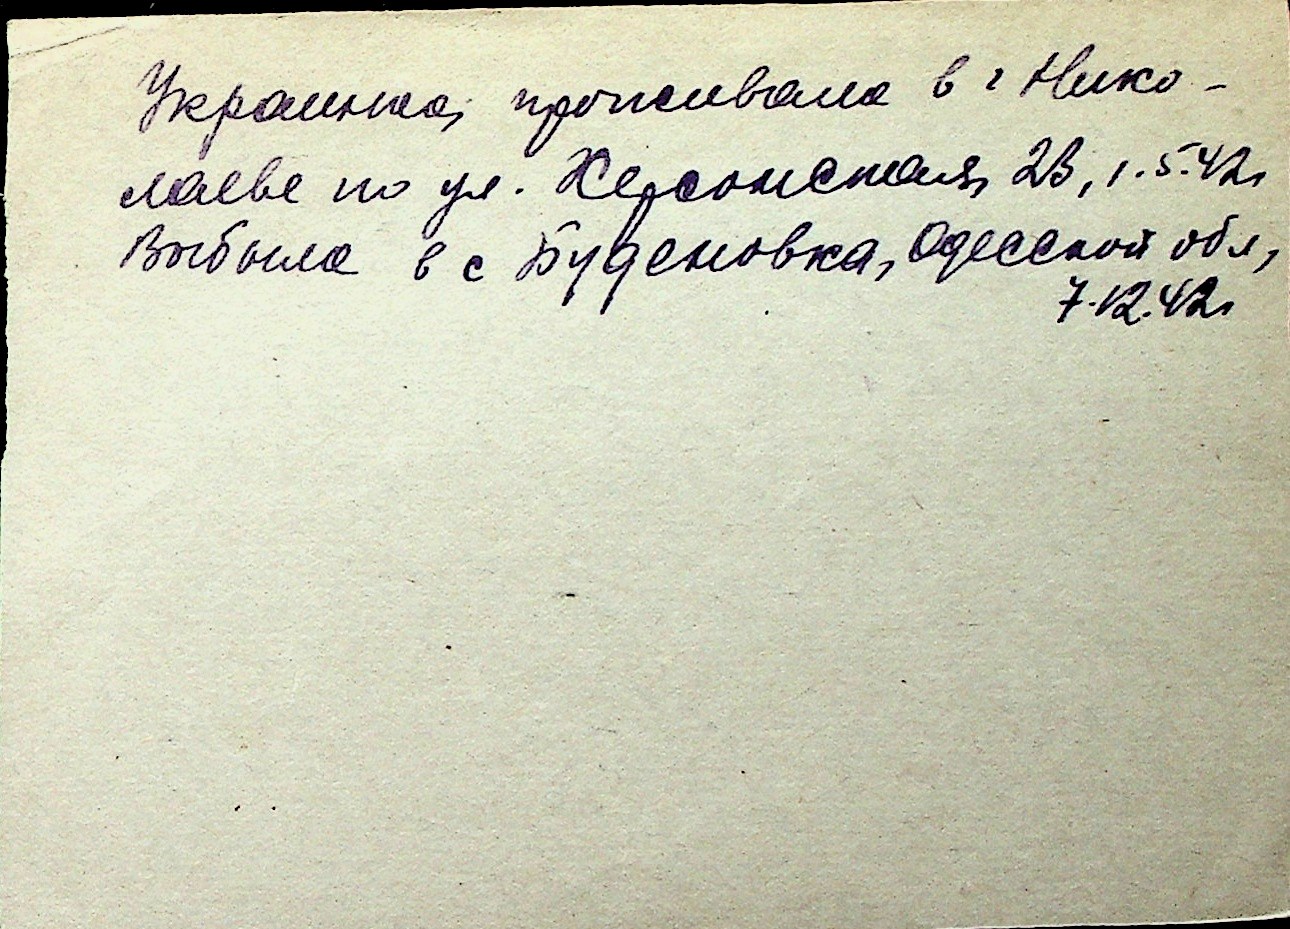 Украинка, проживала в г Нико-
лаеве по ул. Херсонская, 2В, 1.5.42г
Выбыла в с Буденовка, Одесской обл,
7.12.42г